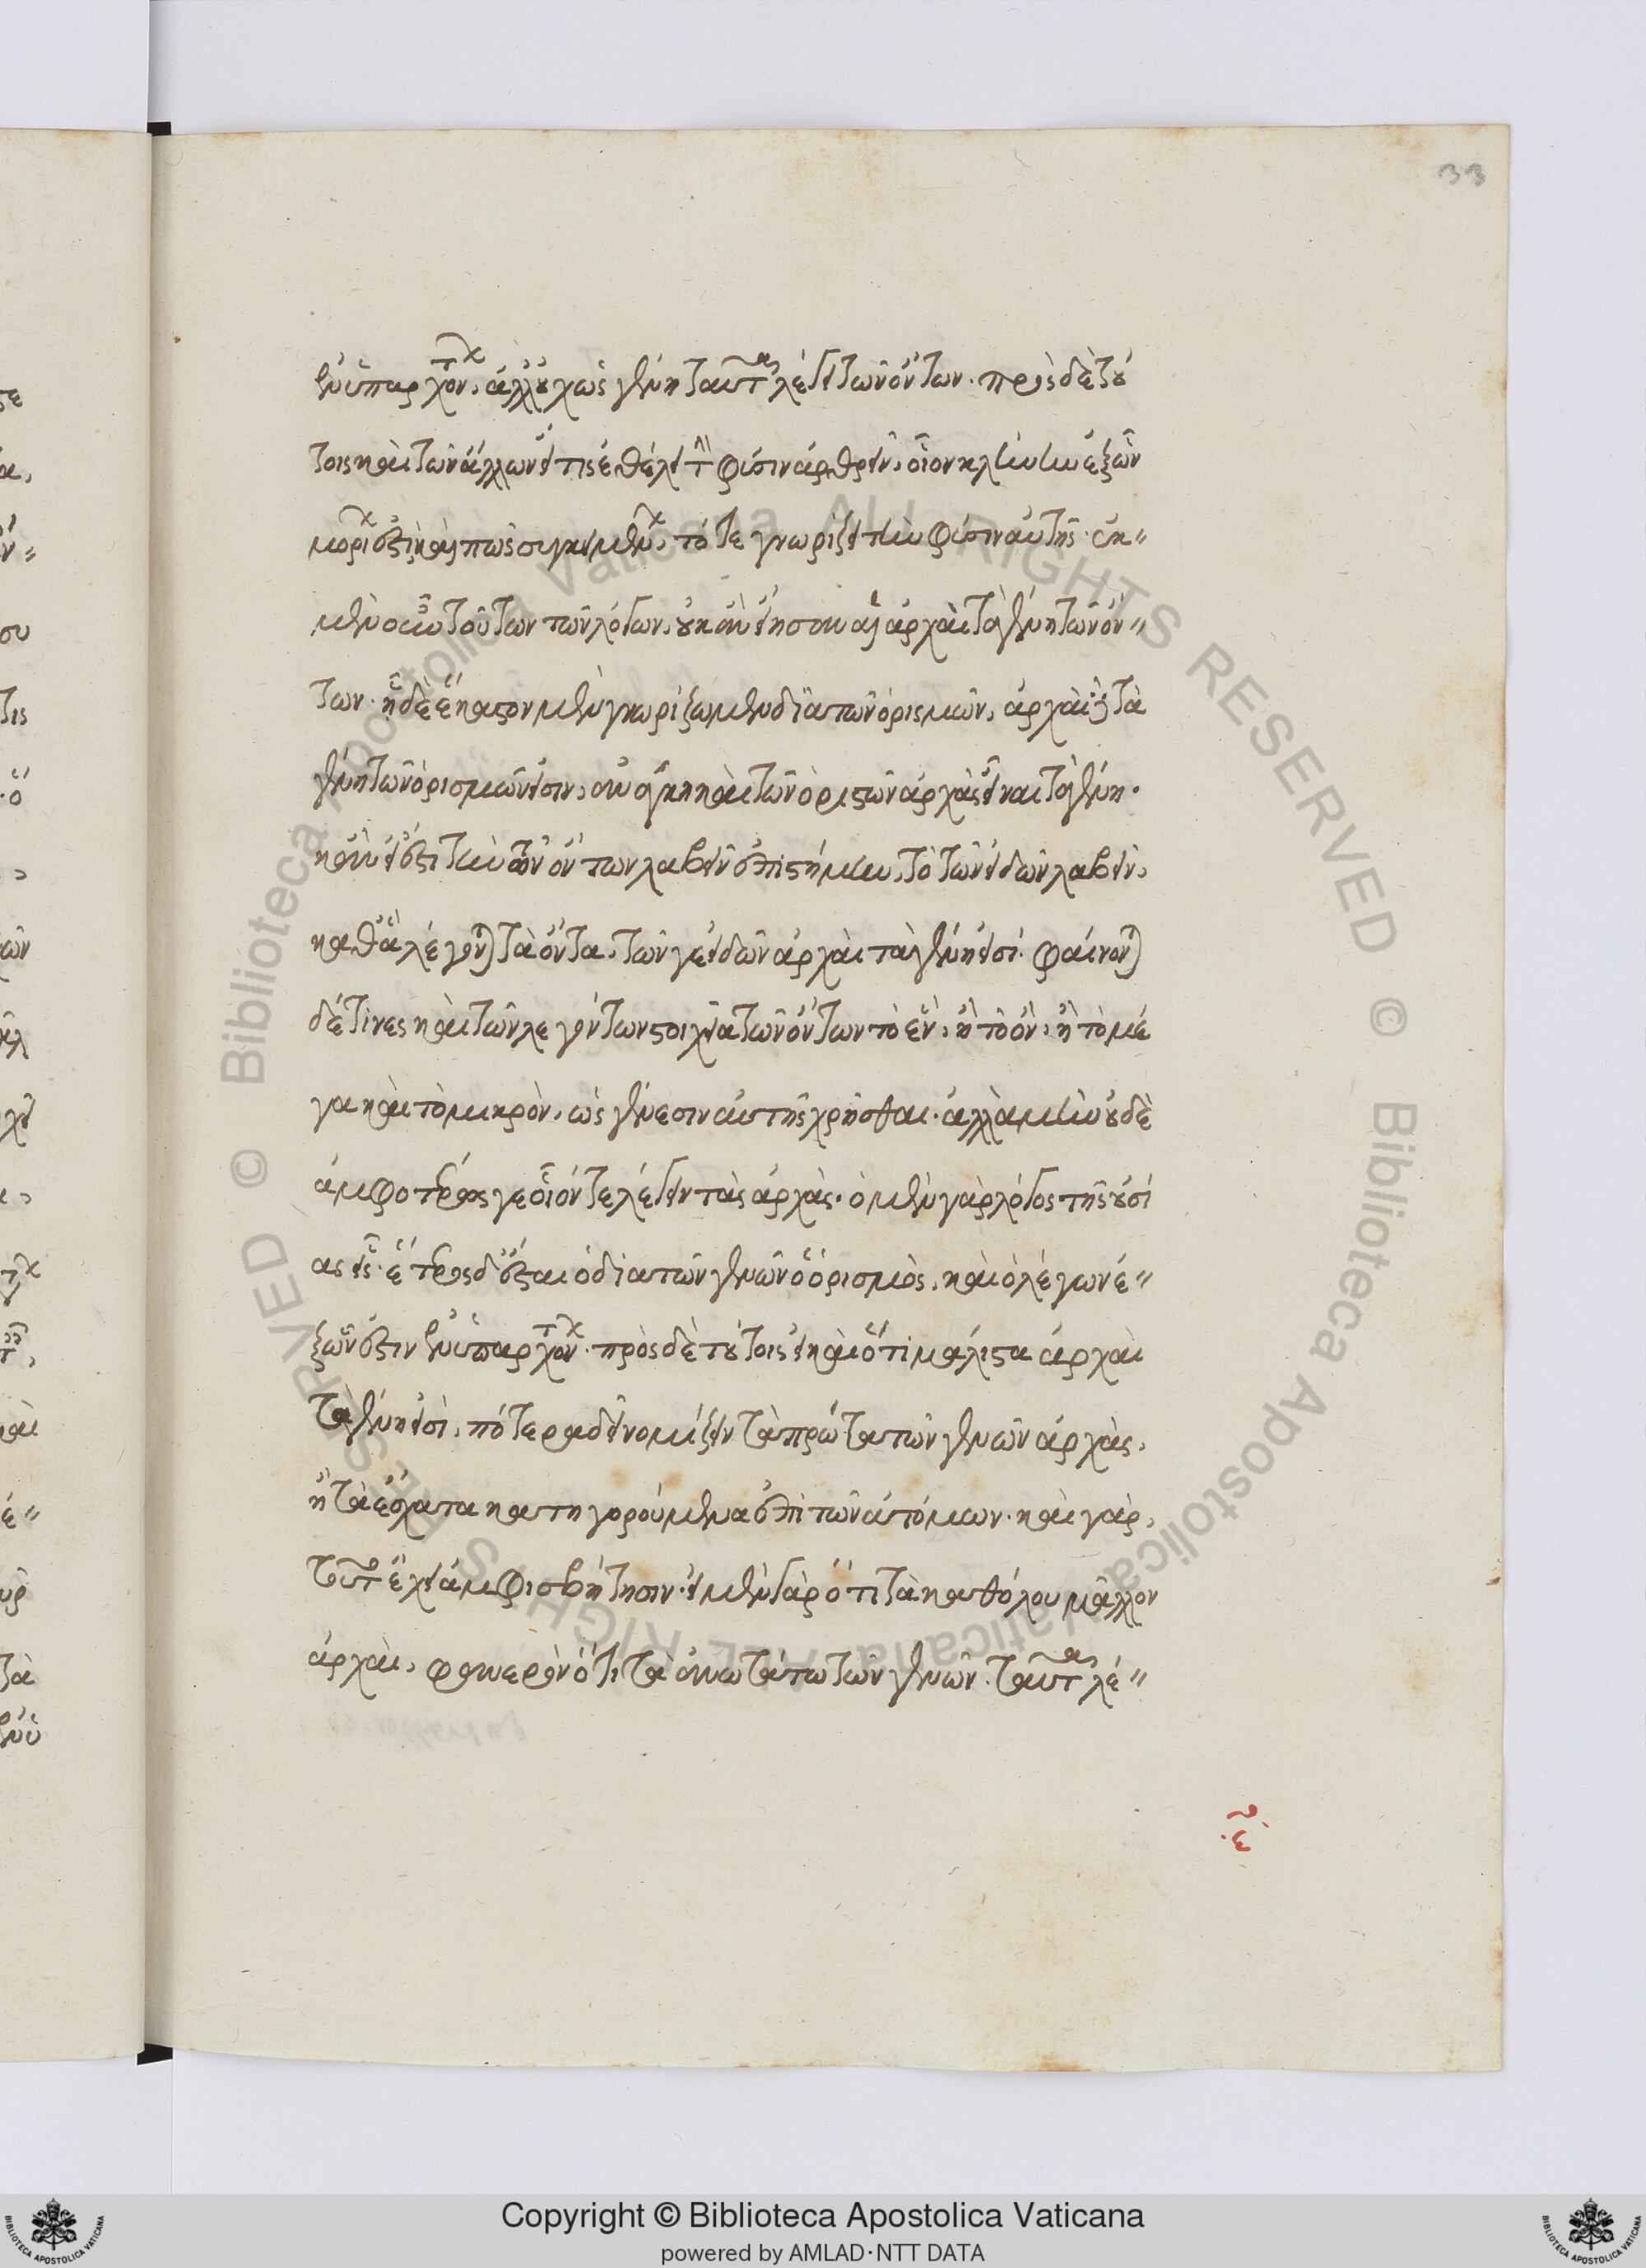 33
ἐνυπαρχόντων, ἀλλ' οὐχ ὡς γένη ταῦτα λέγει τῶν ὄντων. πρὸς δὲ τού
τοις καὶ τῶν ἄλλων εἴ τις ἐθέλει τὴν φύσιν ἀθρεῖν, οἷον κλίνην ἐξ ὧν
μορίων ἐστὶ καὶ πῶς συγκειμένων, τότε γνωρίζει τὴν φύσιν αὐτῆς. ἐκ
μὲν οὖν τούτων τῶν λόγων, οὐκ ἂν εἴησαν αἱ ἀρχαὶ τὰ γένη τῶν ὄν
των. ᾗ δὲ ἕκαστον μὲν γνωρίζομεν διὰ τῶν ὁρισμῶν, ἀρχαὶ δὲ τὰ
γένη τῶν ὁρισμῶν εἰσιν, ἀνάγκη καὶ τῶν ὁριστῶν ἀρχὰς εἶναι τὰ γένη.
κἂν εἰ ἔστι τὴν τῶν ὄντων λαβεῖν ἐπιστήμην, τὸ τῶν εἰδῶν λαβεῖν,
καθ' ἃ λέγονται τὰ ὄντα, τῶν γε εἰδῶν ἀρχαὶ τὰ γένη εἰσί. φαίνονται
δέ τινες καὶ τῶν λεγόντων στοιχεῖα τῶν ὄντων τὸ ἓν, ἢ τὸ ὂν, ἢ τὸ μέ
γα καὶ τὸ μικρὸν, ὡς γένεσιν αὐτῆς χρῆσθαι. ἀλλὰ μὴν οὐδὲ
ἀμφοτέρως γε οἷόν τε λέγειν τὰς ἀρχάς. ὁ μὲν γὰρ λόγος τῆς οὐσί
ας εἷς. ἕτερος δ' ἔσται ὁ διὰ τῶν γενῶν ὁ ὁρισμὸς, καὶ ὁ λέγων ἐ
ξ ὧν ἔστιν ἐνυπαρχόντων. πρὸς δὲ τούτοις εἰ καὶ ὅτι μάλιστα ἀρχαὶ
τὰ γένη εἰσὶ, πότερα δεῖ νομίζειν τὰ πρῶτα τῶν γενῶν ἀρχὰς,
ἢ τὰ ἔσχατα κατηγορούμενα ἐπὶ τῶν ἀτόμων. καὶ γὰρ,
τοῦτο ἔχει ἀμφισβήτησιν. εἰ μὲν γὰρ ὅτι τὰ καθόλου μᾶλλον
ἀρχαὶ, φανερὸν ὅτι τὰ ἀνωτάτω τῶν γενῶν. ταῦτα λέ
© Biblioteca Apostolica Vaticana ALL RIGHTS RESERVED © Biblioteca Apostolica Vaticana ALL RIGHTS RESERVED
Copyright © Biblioteca Apostolica Vaticana
powered by AMLAD·NTT DATA